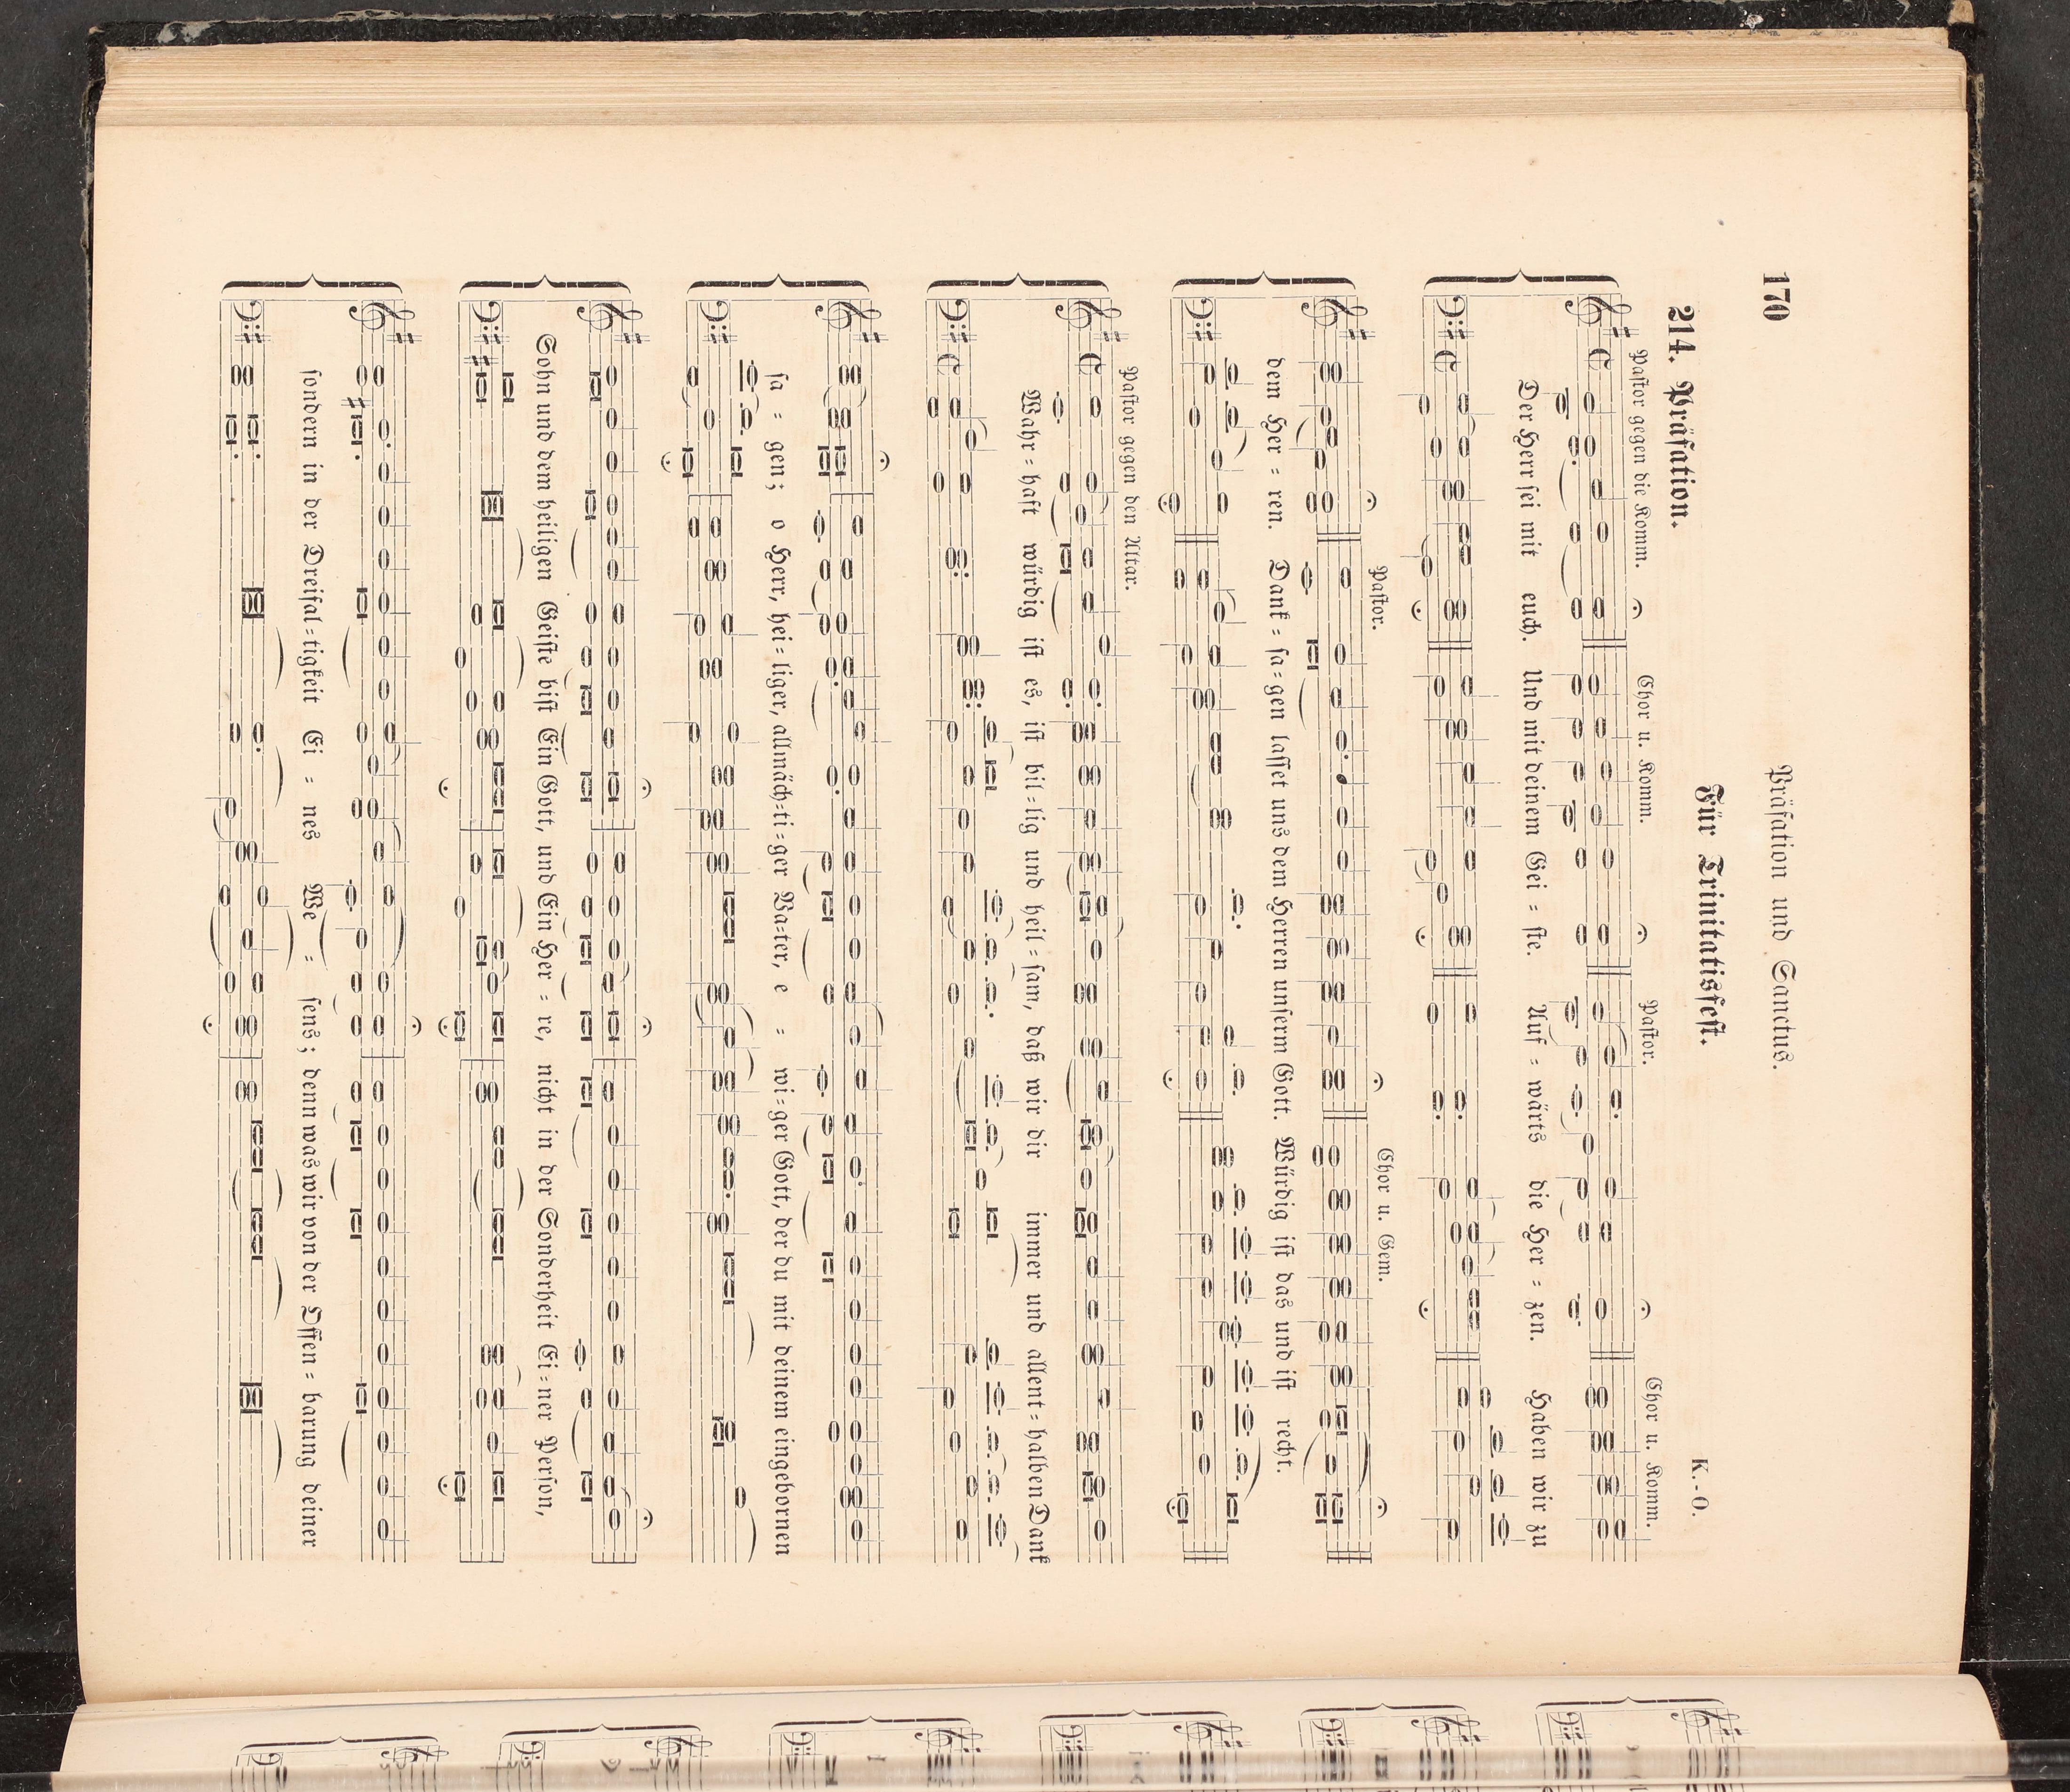 170
Präfation und Sanctus.
Für Trinitatisfest.
214. Präfation.
K.-O.
Pastor gegen die Komm. Chor u. Komm. Pastor. Chor u. Komm.
Der Herr sei mit euch. Und mit deinem Gei = ste. Auf = wärts die Her = zen. Haben wir zu
Pastor. Chor u. Gem.
dem Her = ren. Dank = sa = gen lasset uns dem Herren unserm Gott. Würdig ist das und ist recht.
Pastor gegen den Altar.
Wahr = haft würdig ist es, ist bil = lig und heil = sam, daß wir dir immer und allent = halben Dank
sa = gen; o Herr, hei = liger, allmäch = ti = ger Va = ter, e = wi = ger Gott, der du mit deinem eingebornen
Sohn und dem heiligen Geiste bist Ein Gott, und Ein Her = re, nicht in der Sonderheit Ei = ner Person,
sondern in der Dreifal = tigkeit Ei = nes We = sens; denn was wir von der Offen = barung deiner